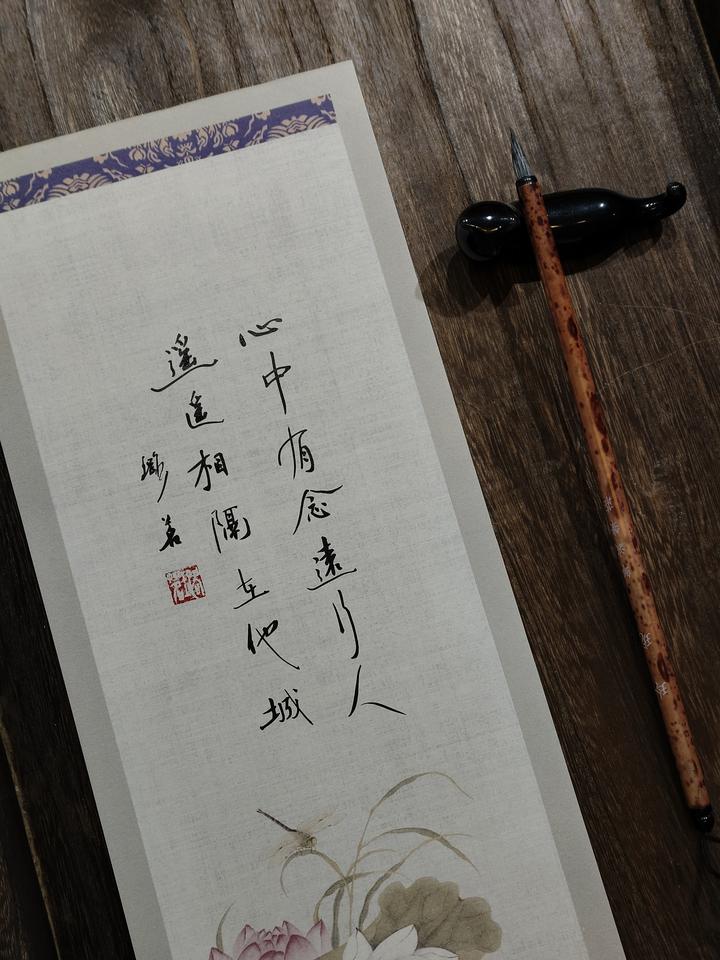 心中有念遠行人
遥遥相隔在他城